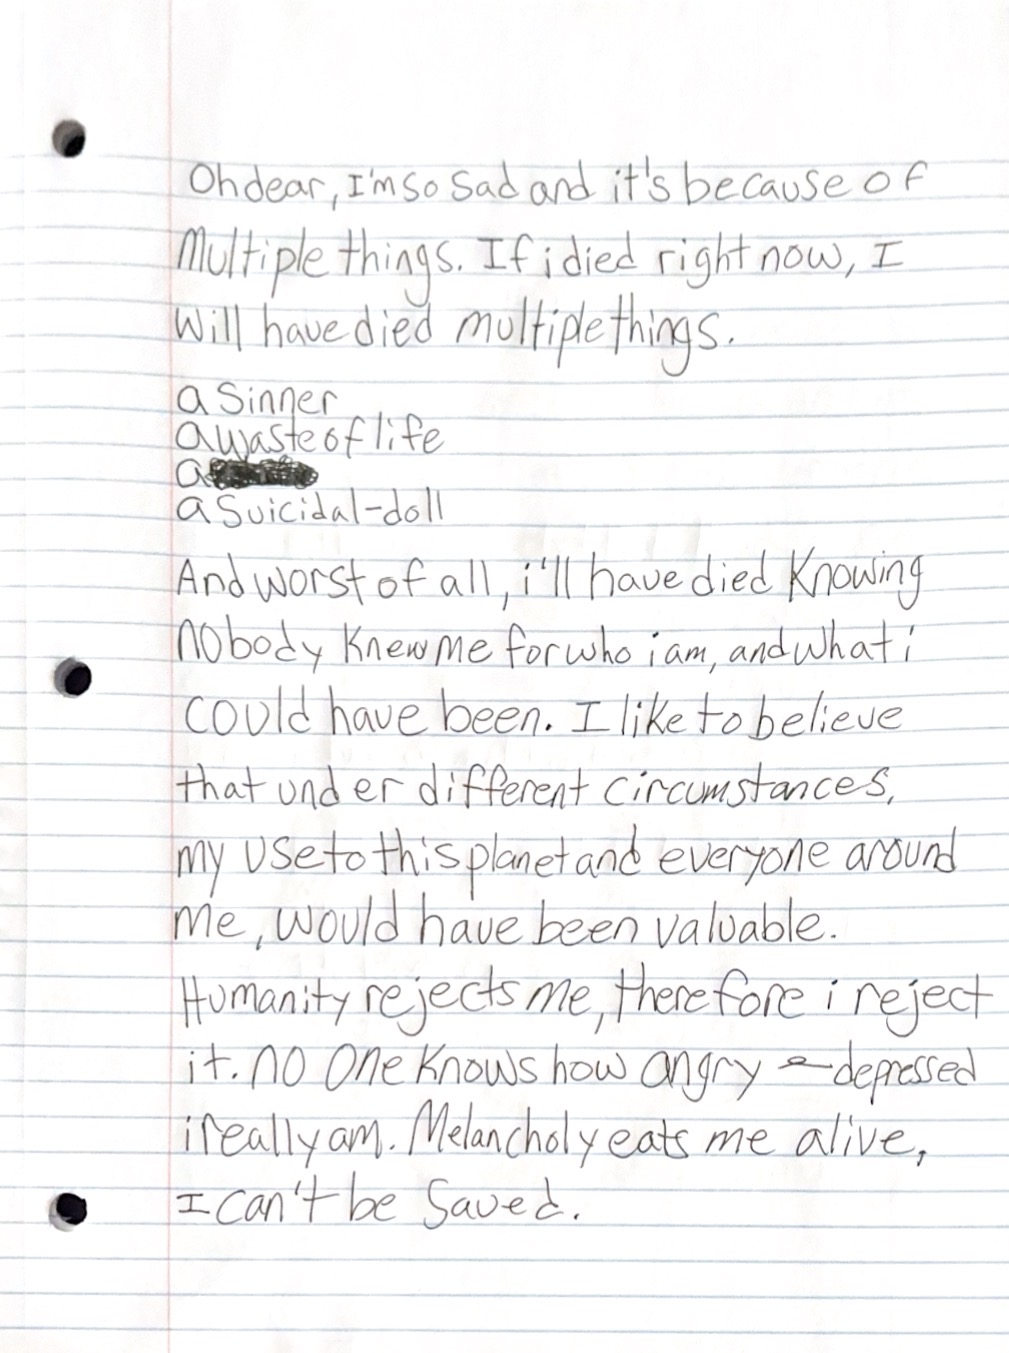 Oh dear, I'm so sad and it's because of
Multiple things. If i died right now, I
Will have died multiple things.
a Sinner
a waste of life
a
a Suicidal-doll
And worst of all, i'll have died Knowing
nobody Knew me for who i am, and what i
could have been. I like to believe
that under different circumstances,
my use to this planet and everyone around
me, would have been valuable.
Humanity rejects me, therefore i reject
it. no one knows how angry depressed
i really am. Melancholy eats me alive,
I can't be saved.